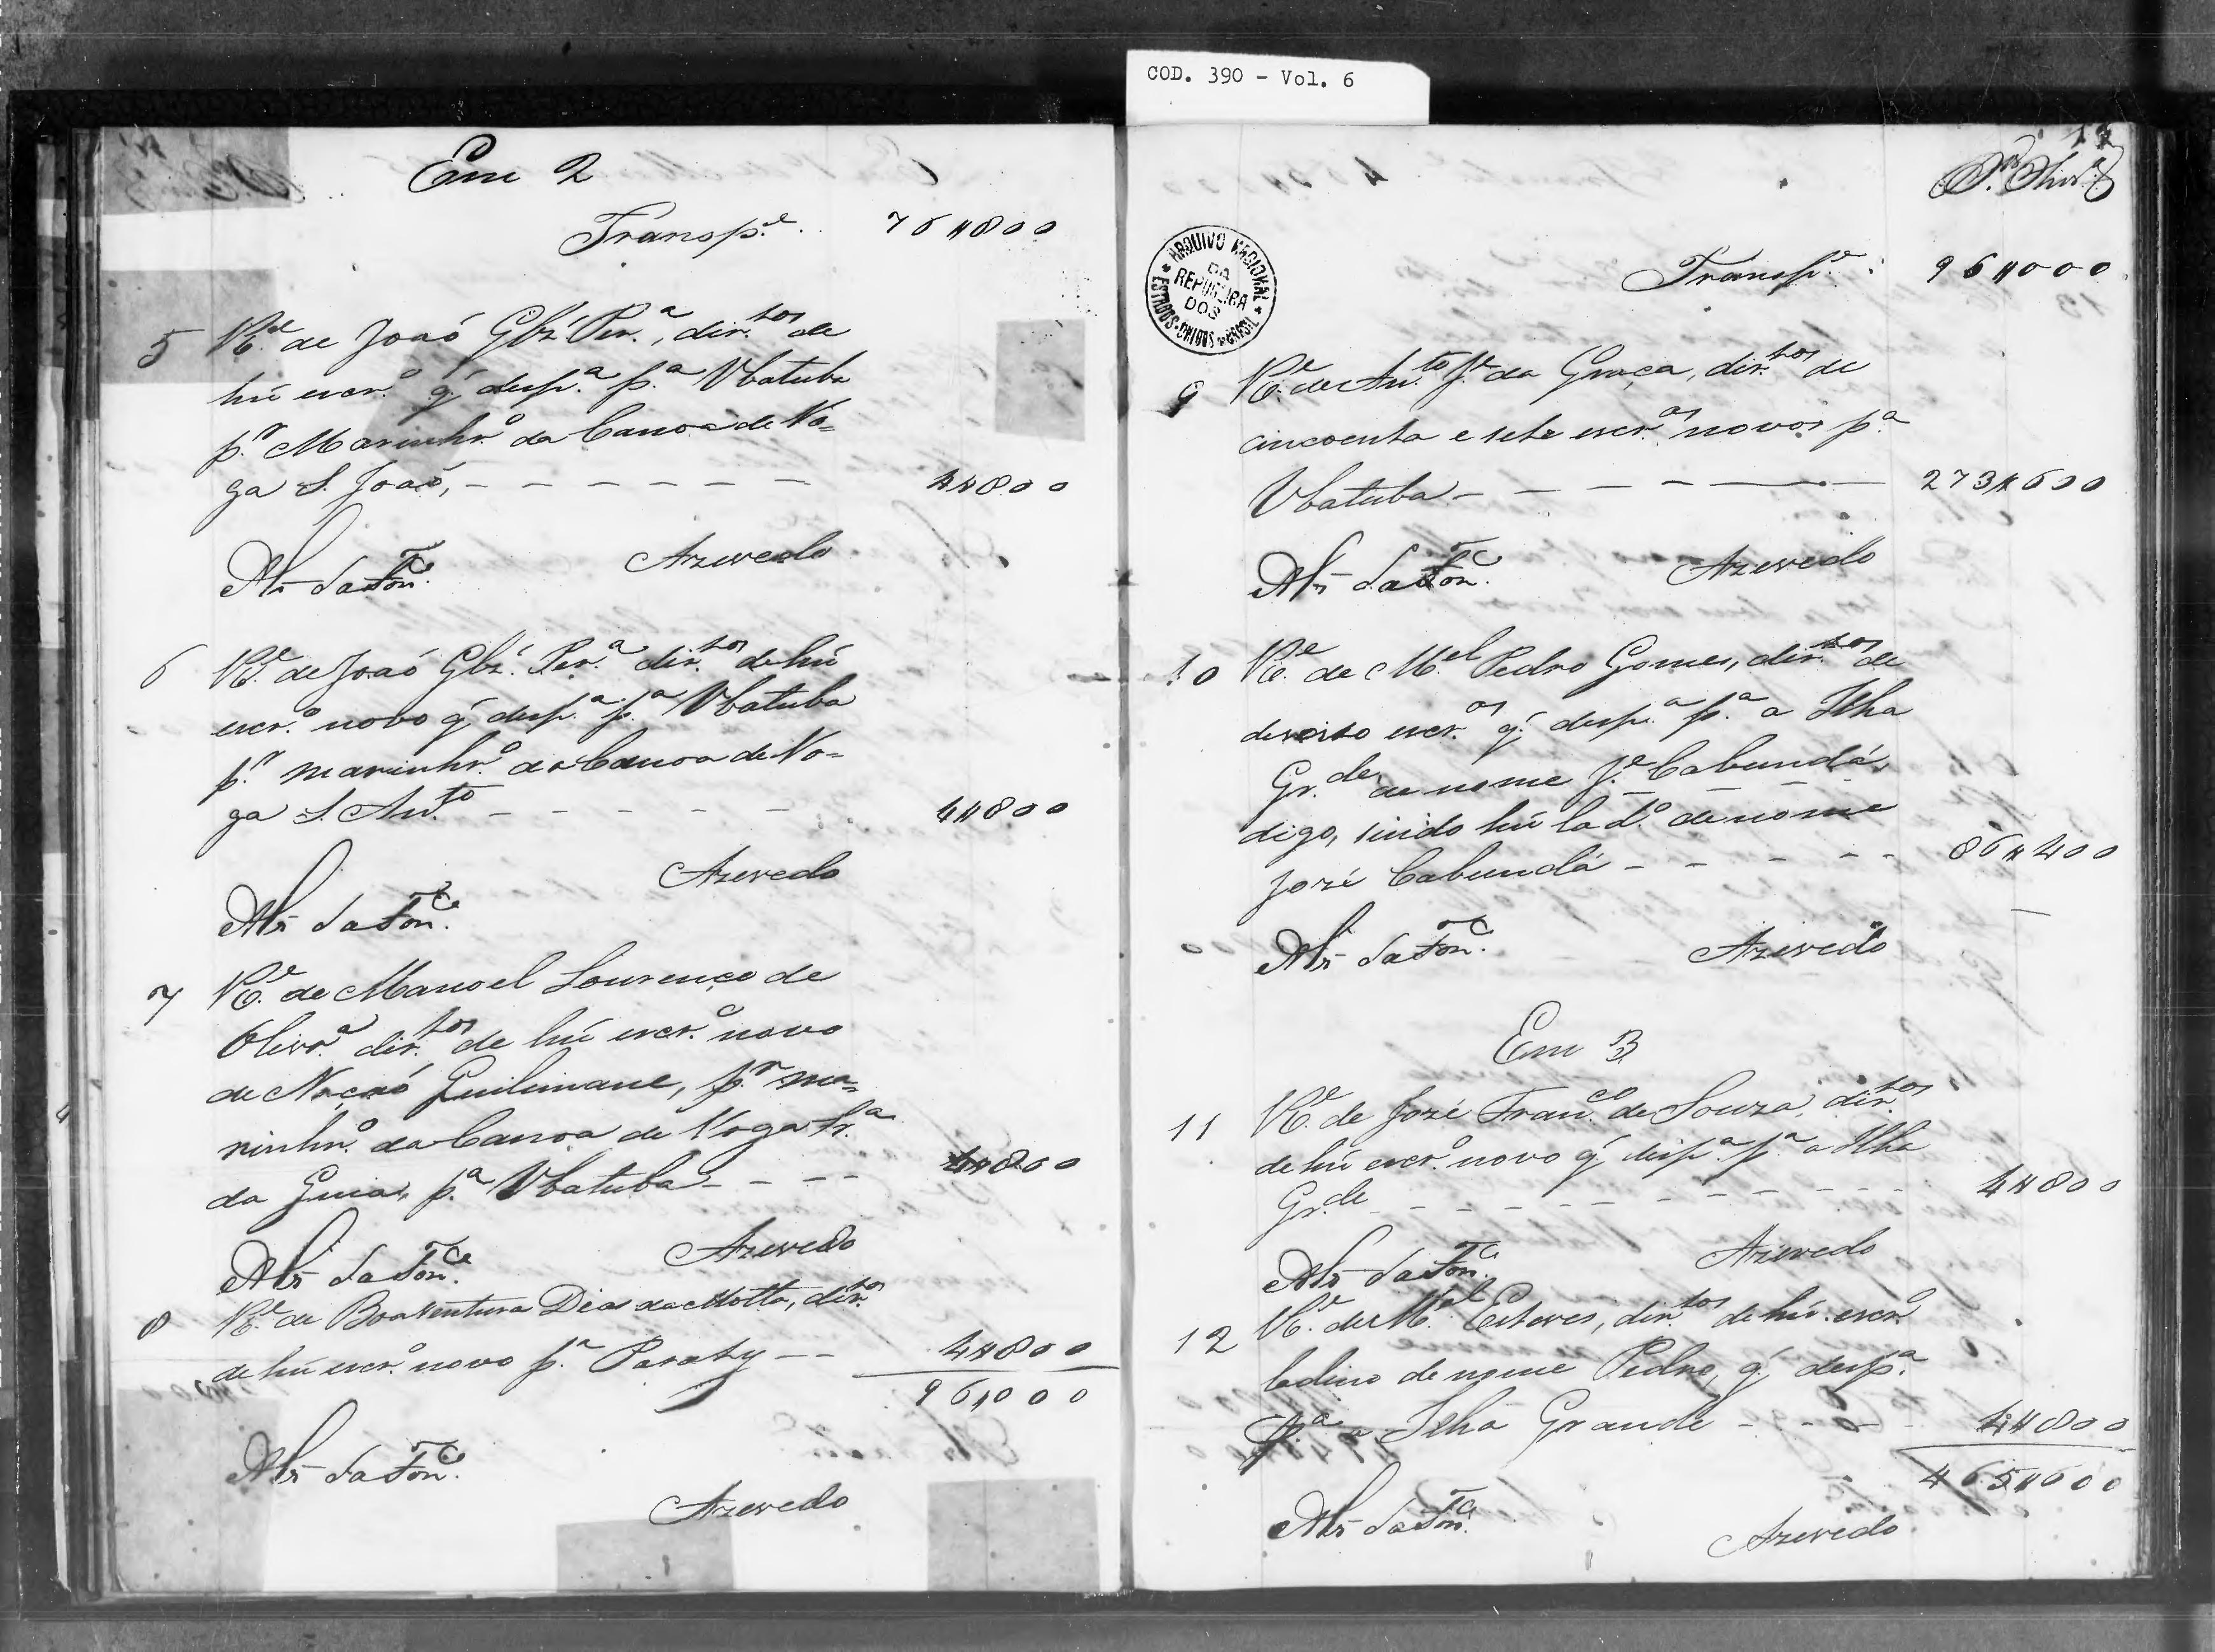 COD. 390 - Vol. 6
Em 2
Transp.e 76"800
5 R.e de Joaó Glz' Per.a, dir.tos de
hú escr.o q' desp.a p.a Vbatuba
p.r Marinhr.o da Canoa de Vo=
ga S. Joaó, - - - - - - 4"800
Azevedo
6 R.e de Joaó Glz' Per.a dir.tos de hú
escr.o novo q' desp.a p.a Vbatuba
p.r marinhr.o da Canoa de Vo=
ga S. Ant.to - - - - - 4"800
Azevedo
7 R.e de Manoel Lourenço de
Olivr.a dir.tos de hú escr.o novo
de Naçaó Quilimane, p.r ma=
rinhr.o da Canoa de Voga Sr.a
da Guia, p.a Vbatuba - - - - 4"800
Azevedo
8 R.e de Boaventura Dias da Motta, dir.tos
de hú escr.o novo p.a Paraty - - 4"800
96"000
Azevedo
ARQUIVO NACIONAL
DA
REPUBLICA
DOS
ESTADOS UNIDOS BRASIL
Transp.e 96"000
9 R.e de An.to J.e da Graça, dir.tos de
cincoenta e sete escr.os novos p.a
Vbatuba - - - - - 273"600
Azevedo
10 R.e de M.el Pedro Gomes, dir.tos de
desoito escr.os q' desp.a p.a a Ilha
Gr.de de nome J.e Cabundá,
digo, sindo hú lad.o de nome
José Cabundá - - - - - 86"400
Azevedo
Em 3
11 R.e de José Fran.co de Souza, dir.tos
de hú escr.o novo q' desp.a p.a a Ilha
Gr.de - - - - - - - - 4"800
Azevedo
12 R.e de M.el Esteves, dir.tos de hú escr.o
ladino de nome Pedro, q' desp.a
p.a a Ilha Grande - - - - 4"800
465"600
Azevedo